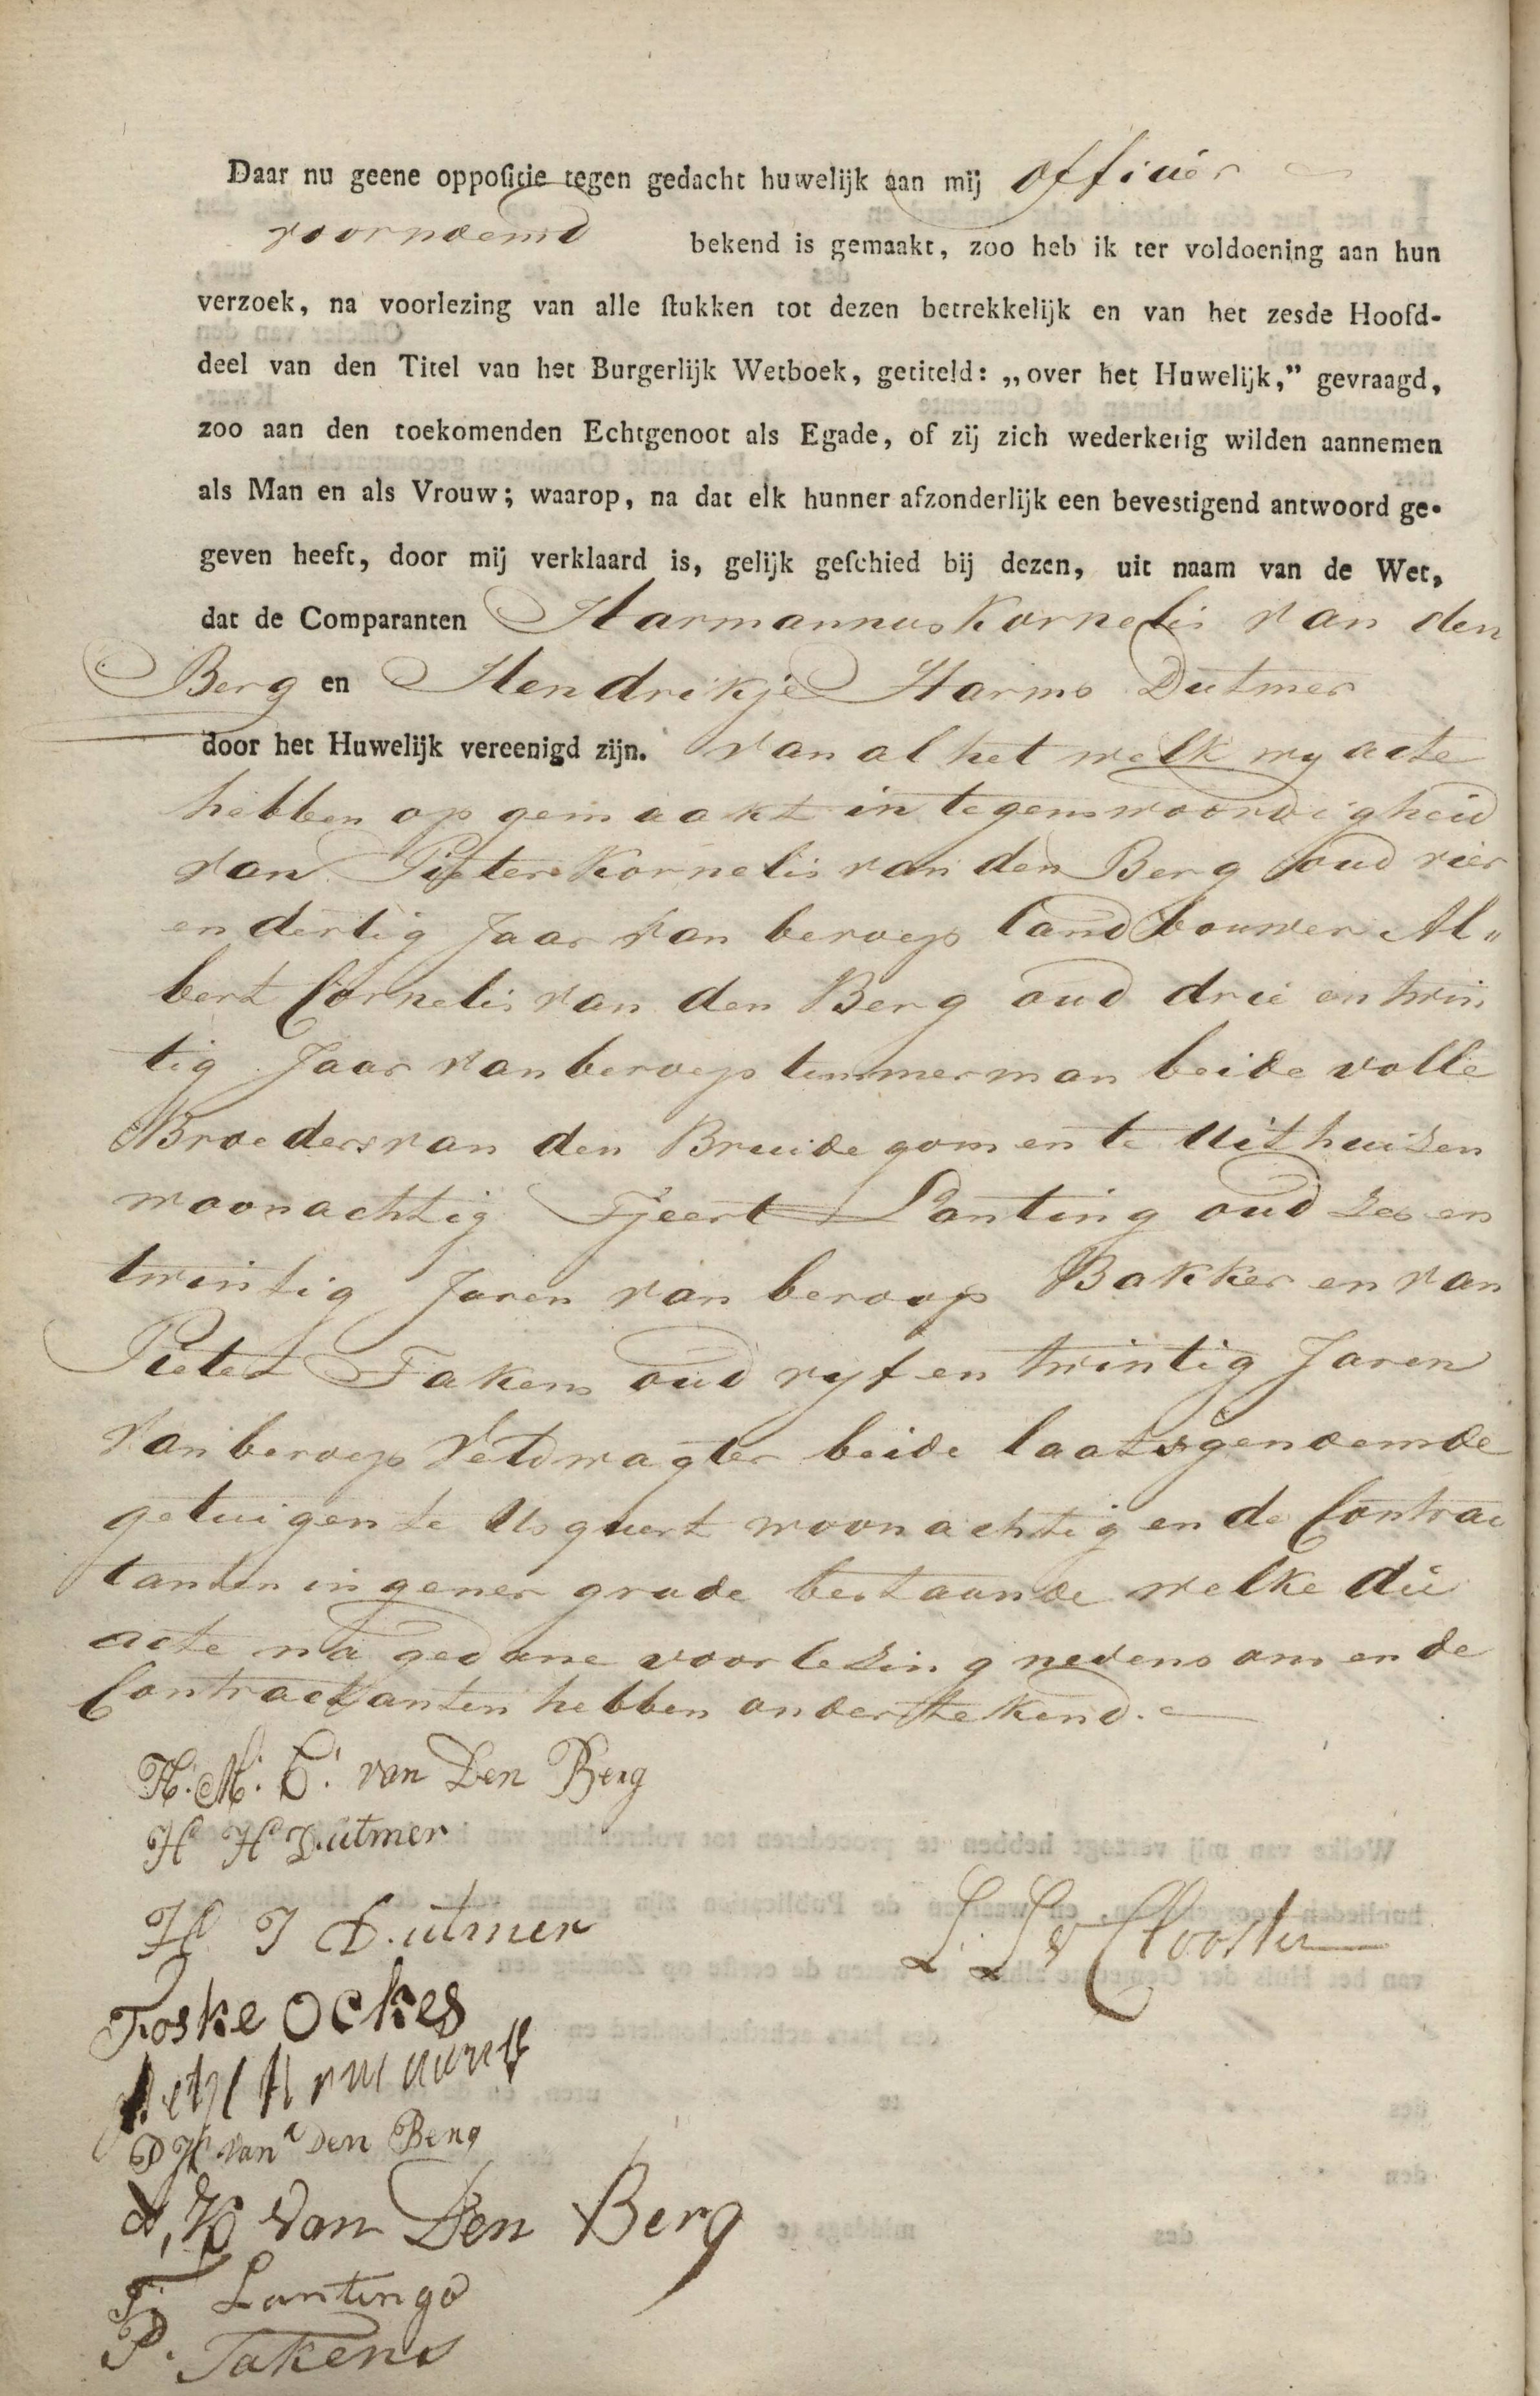 Daar nu geene oppoſitie tegen gedacht huwelijk aan mij officier
voornoemd bekend is gemaakt, zoo heb ik ter voldoening aan hun
verzoek, na voorlezing van alle ſtukken tot dezen betrekkelijk en van het zesde Hoofd-
deel van den Titel van het Burgerlijk Wetboek, getiteld: „over het Huwelijk,” gevraagd,
zoo aan den toekomenden Echtgenoot als Egade, of zij zich wederkerig wilden aannemen
als Man en als Vrouw; waarop, na dat elk hunner afzonderlijk een bevestigend antwoord ge-
geven heeft, door mij verklaard is, gelijk geſchied bij dezen, uit naam van de Wet,
dat de Comparanten Harmannus Kornelis van den
Berg en Hendrikje Harms Dutmer
door het Huwelijk vereenigd zijn. van al het welk wy acte
hebben op gemaakt in tegenswoordigheid
van Pieter Kornelis van den Berg oud vier
en dertig Jaar van beroep landbouwer Al„
bert Cornelis van den Berg oud drie en twin
tig Jaar van beroep temmerman beide volle
Broeders van den Bruidegom en te Uithuisen
woonachtig Tjeert Lanting oud Ses en
twintig Jaren van beroep Bakker en van
Pieter Takens oud vyf en twintig Jaren
van beroep Veldwagter beide laatsgenoemde
getuigen te Usquert woonachtig en de Contrac
tanten in gener grade bestaande welke die
acte na gedane voorlesing nevens ons en de
Contractanten hebben onderstekend.
H. M. C. van Den Berg
H H Dutmer
H J Dutmer
L. Ls Clooster
Foske Ockes
van Den Berg
A, K van Den Berg
T. Lantinga
P. Takens